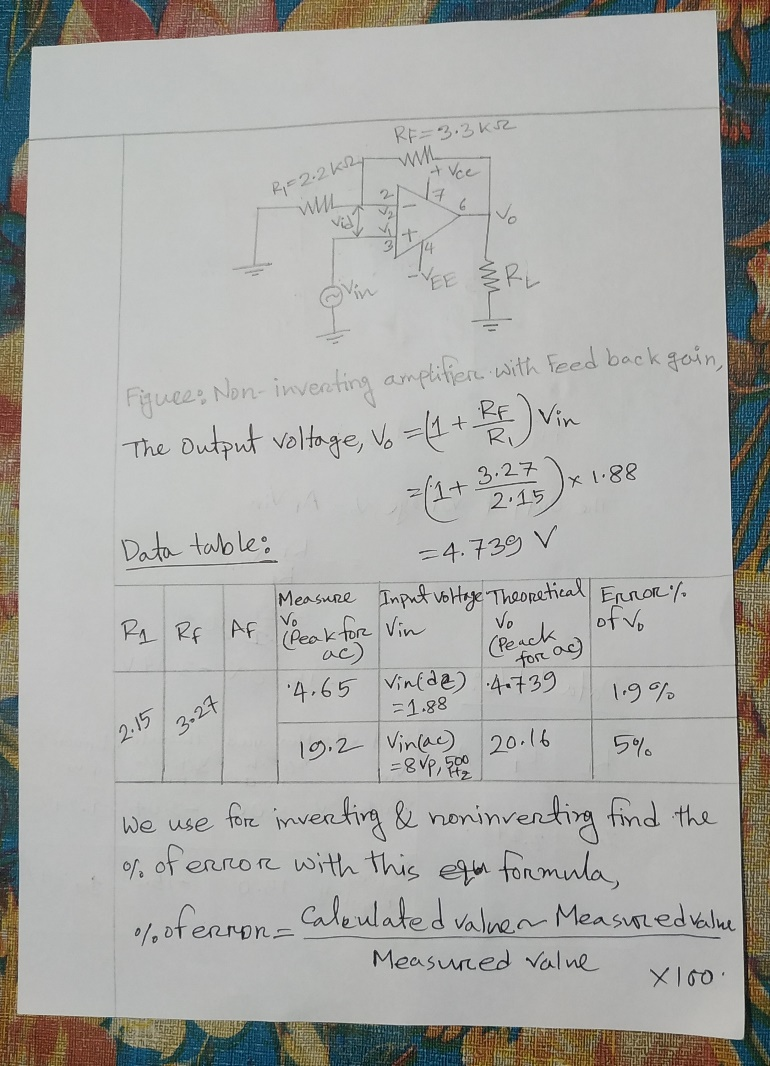 RF=3.3 KΩ
R1=2.2 KΩ
+ Vcc
2
7
V2
-
6
Vo
Vid
V1
+
3
4
-VEE
RL
Vin
Figuee: Non-inverting amplifier with Feed back gain,
The Output voltage, Vo = (1 + RF/R1) Vin
= (1 + 3.27/2.15) × 1.88
= 4.739 V
Data table:
R1 | RF | AF | Measure Vo (Peak for ac) | Input voltage Vin | Theoretical Vo (Peack for ac) | Error % of Vo
2.15 | 3.27 | | 4.65 | Vin(dc) = 1.88 | 4.739 | 1.9 %
19.2 | Vin(ac) = 8 Vp, 500 Hz | 20.16 | 5%
We use for inverting & noninverting find the
% of error with this formula,
% of error = Calculated value ~ Measured value
Measured value
×100